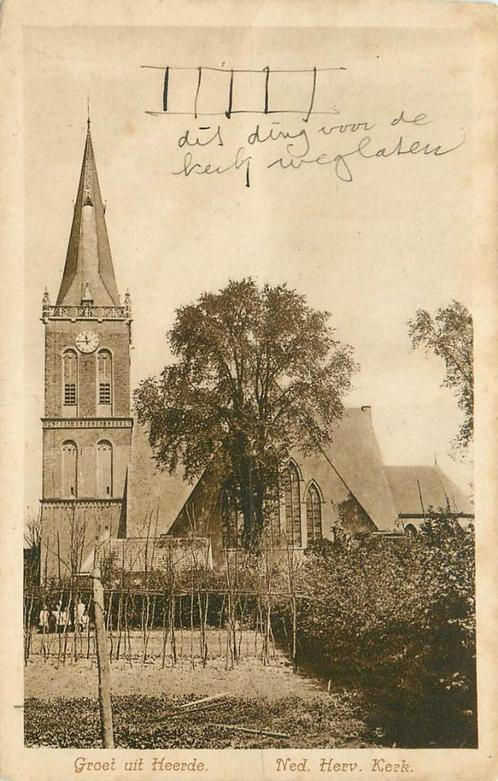 dit ding voor de
kerk weglaten
Groet uit Heerde. Ned. Herv. Kerk.